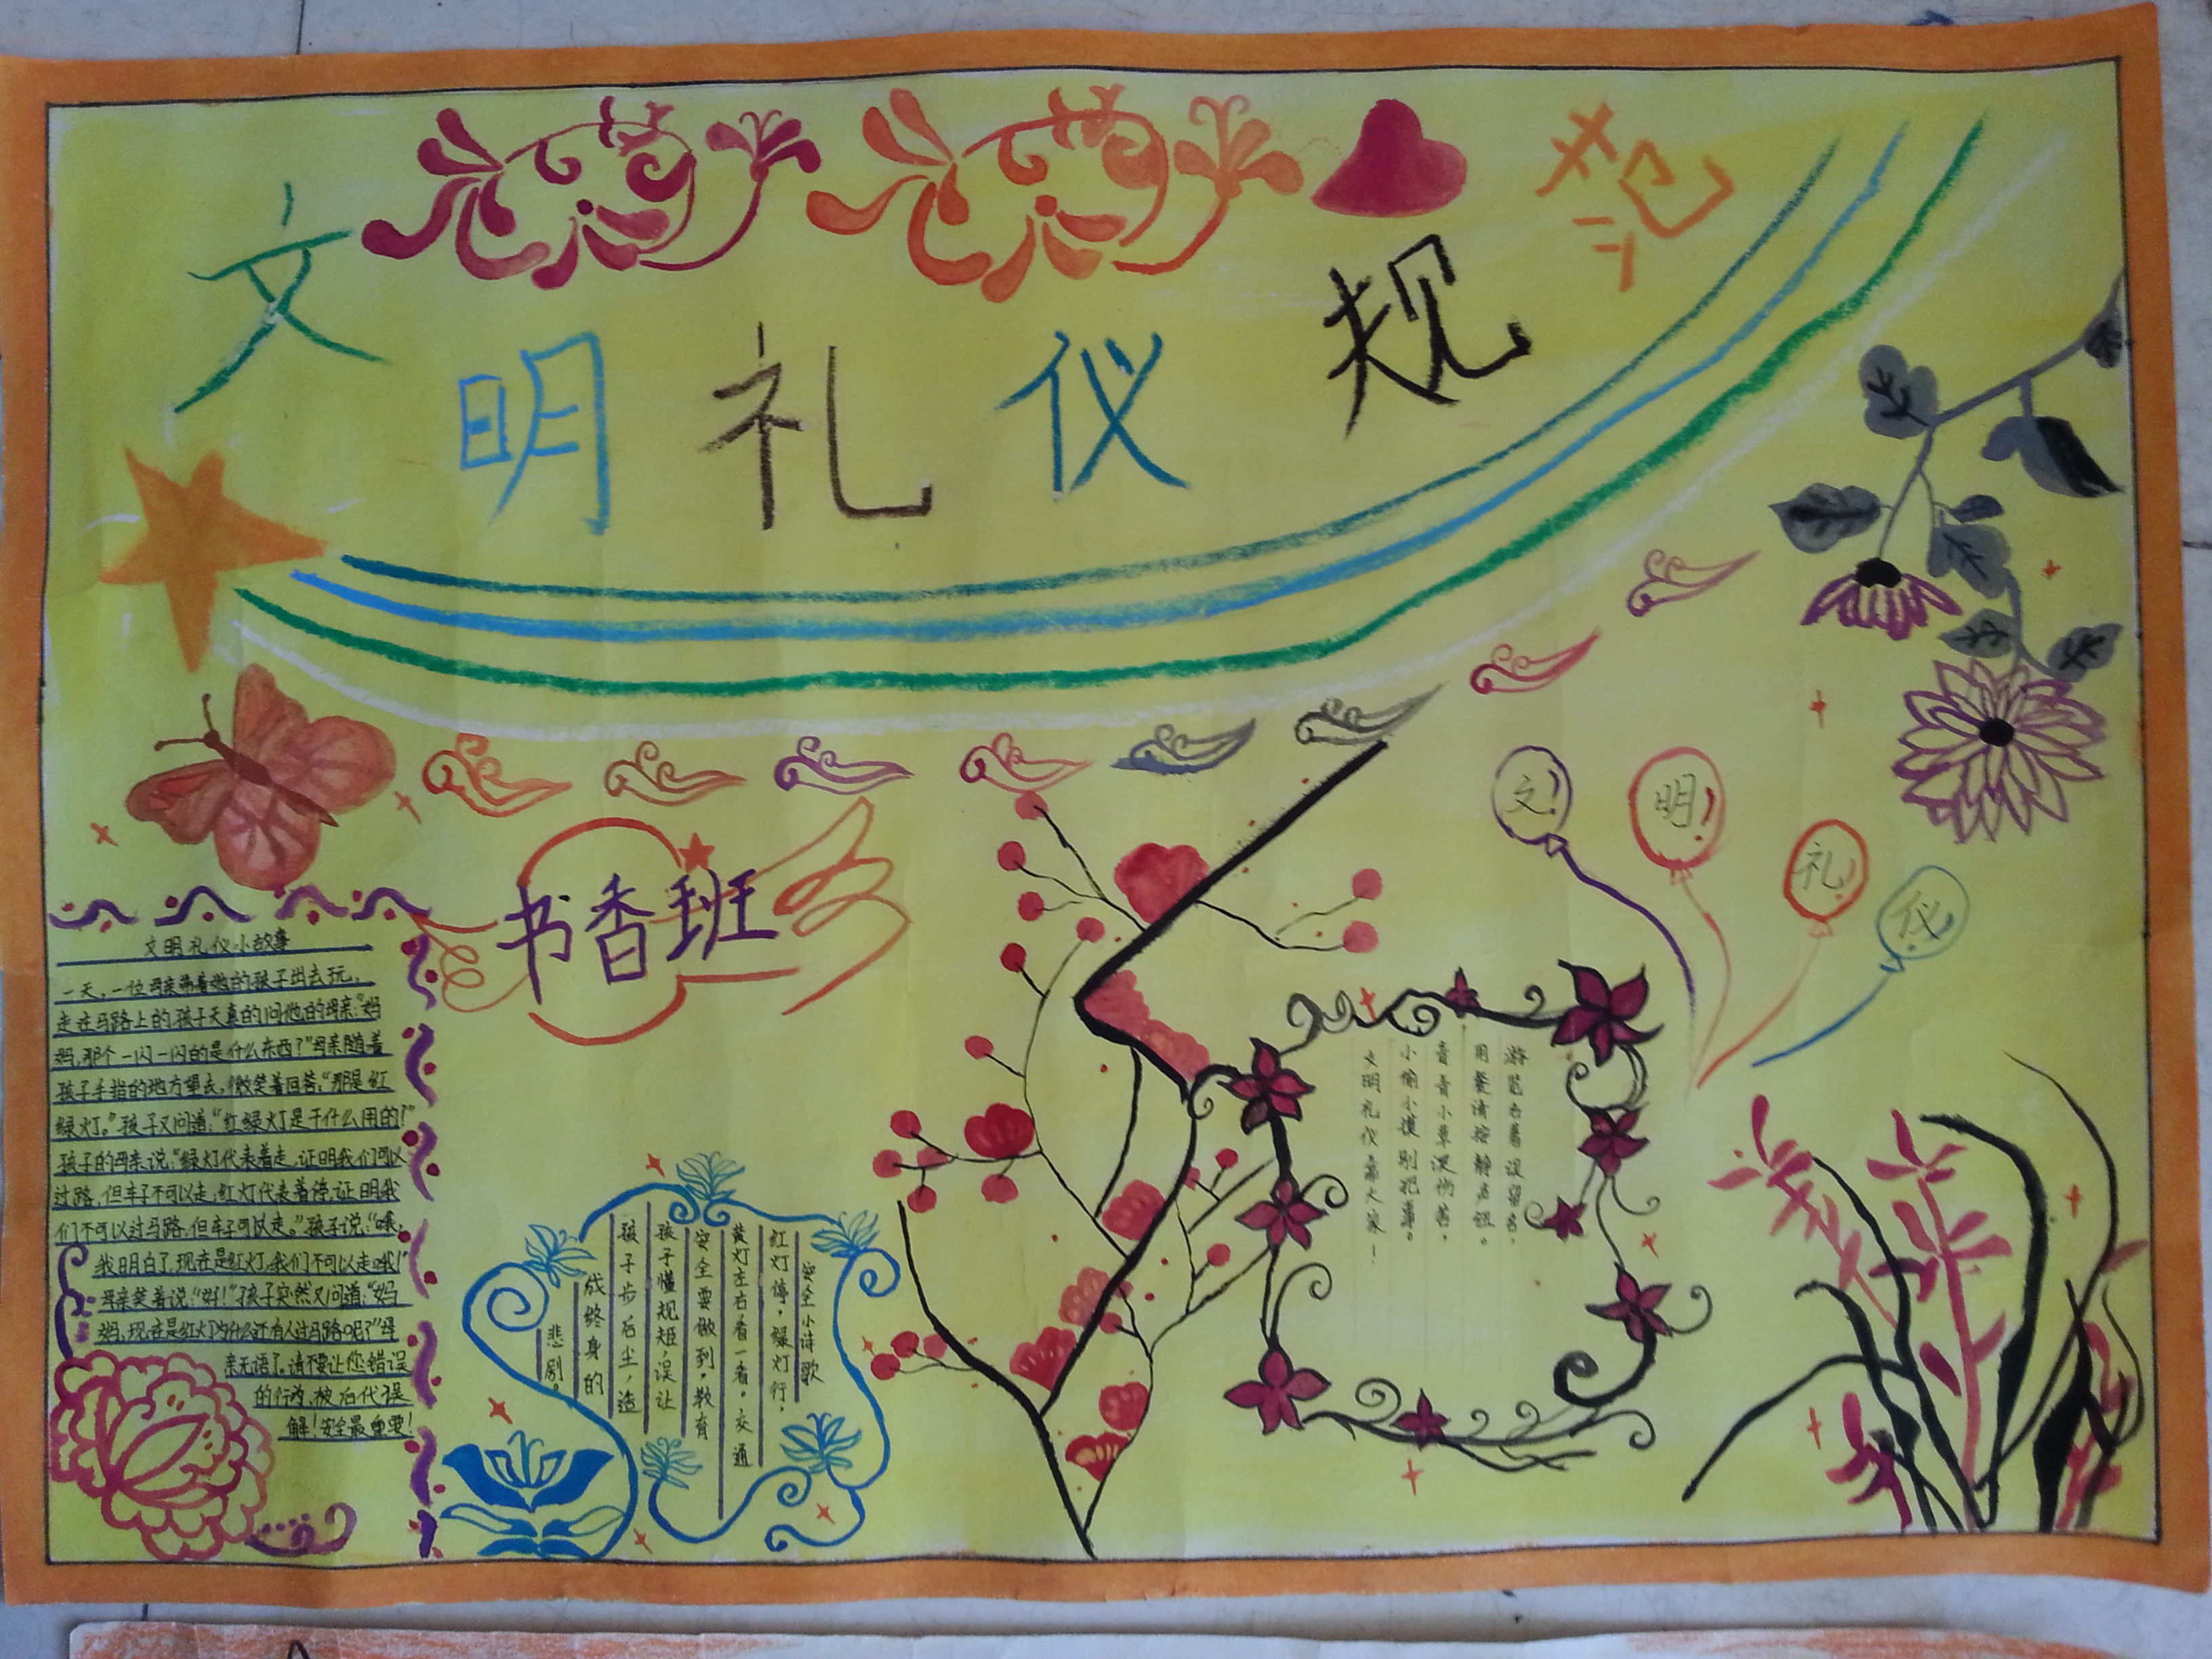 文明礼仪规范
书香班
文!
明!
礼!
仪!
文明礼仪小故事
一天,一位母亲带着她的孩子出去玩,
走在马路上的孩子天真的问他的母亲:“妈
妈,那个一闪一闪的是什么东西?”母亲随着
孩子手指的地方望去,微笑着回答,“那是红
绿灯。”孩子又问道:“红绿灯是干什么用的!”
孩子的母亲说:“绿灯代表着走,证明我们可以
过路,但车子不可以走;红灯代表着停,证明我
们不可以过马路,但车子可以走。”孩子说:“哦,
我明白了,现在是红灯,我们不可以走哦!”
母亲笑着说:“好!”孩子突然又问道:“妈
妈,现在是红灯为什么还有人过马路呢?”母
亲无语了。请不要让您错误
的行为,被后代误
解!安全最重要!
安全小诗歌
红灯停,绿灯行,
黄灯左右看一看。交通
安全要做到,教育
孩子懂规矩,误让
孩子步后尘,造
成终身的
悲剧。
游览古着误留名,
用餐请按静声钮。
青青小草深伤害,
小偷小摸别犯事。
文明礼仪靠大家!